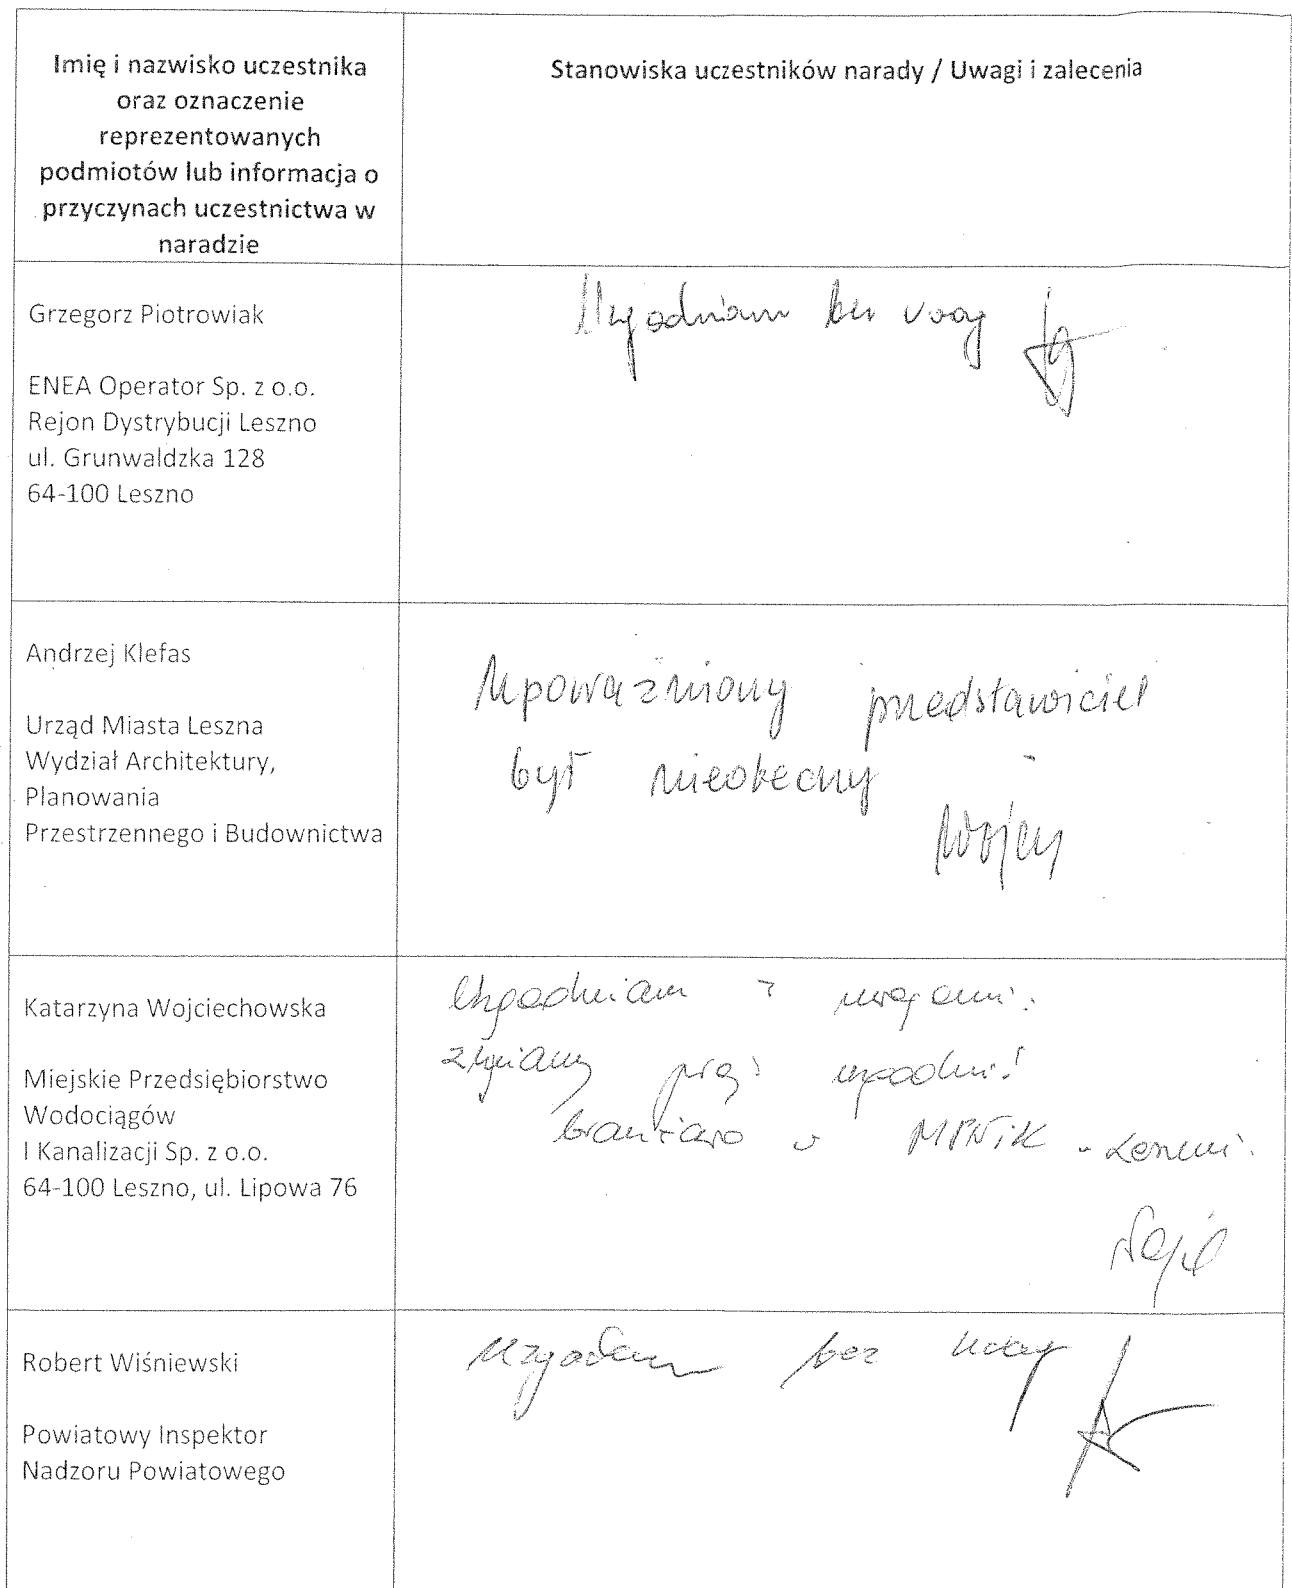 Imię i nazwisko uczestnika
oraz oznaczenie
reprezentowanych
podmiotów lub informacja o
przyczynach uczestnictwa w
naradzie
Stanowiska uczestników narady / Uwagi i zalecenia
Grzegorz Piotrowiak
ENEA Operator Sp. z o.o.
Rejon Dystrybucji Leszno
ul. Grunwaldzka 128
64-100 Leszno
Uzgadniam bez uwag
Andrzej Klefas
Urząd Miasta Leszna
Wydział Architektury,
Planowania
Przestrzennego i Budownictwa
Upoważniony przedstawiciel
był nieobecny
Katarzyna Wojciechowska
Miejskie Przedsiębiorstwo
Wodociągów
I Kanalizacji Sp. z o.o.
64-100 Leszno, ul. Lipowa 76
Uzgadniam z uwagami:
MPWiK
Robert Wiśniewski
Powiatowy Inspektor
Nadzoru Powiatowego
bez uwag